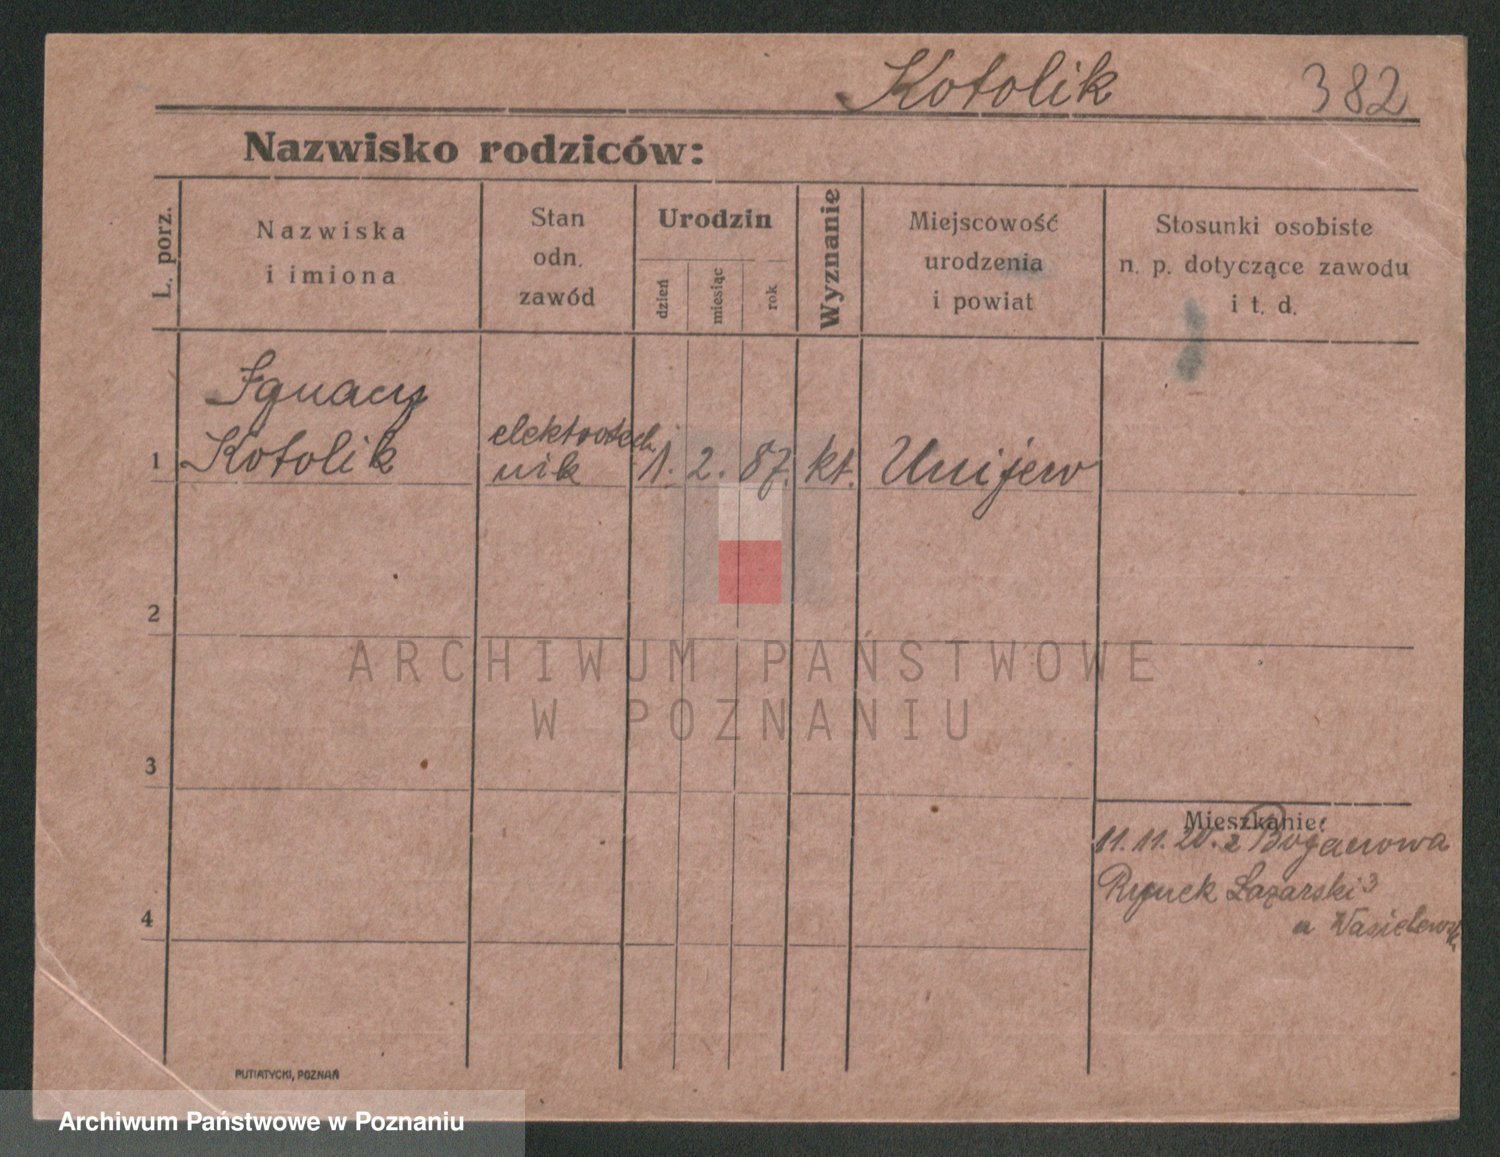 Kotolik 382
Nazwisko rodziców:
L. porz.
Nazwiska
i imiona
Stan
odn.
zawód
Urodzin
dzień
miesiąc
rok
Wyznanie
Miejscowość
urodzenia
i powiat
Stosunki osobiste
n. p. dotyczące zawodu
i t. d.
Ignacy
1 Kotolik
elektrotech
nik
1. 2. 87. kt. Unijew
2
3
4
ARCHIWUM PAŃSTWOWE
W POZNANIU
Mieszkanie:
11.11.20. z Boganowa
Rynek Łazarski 3
u
PUTIATYCKI, POZNAŃ
Archiwum Państwowe w Poznaniu